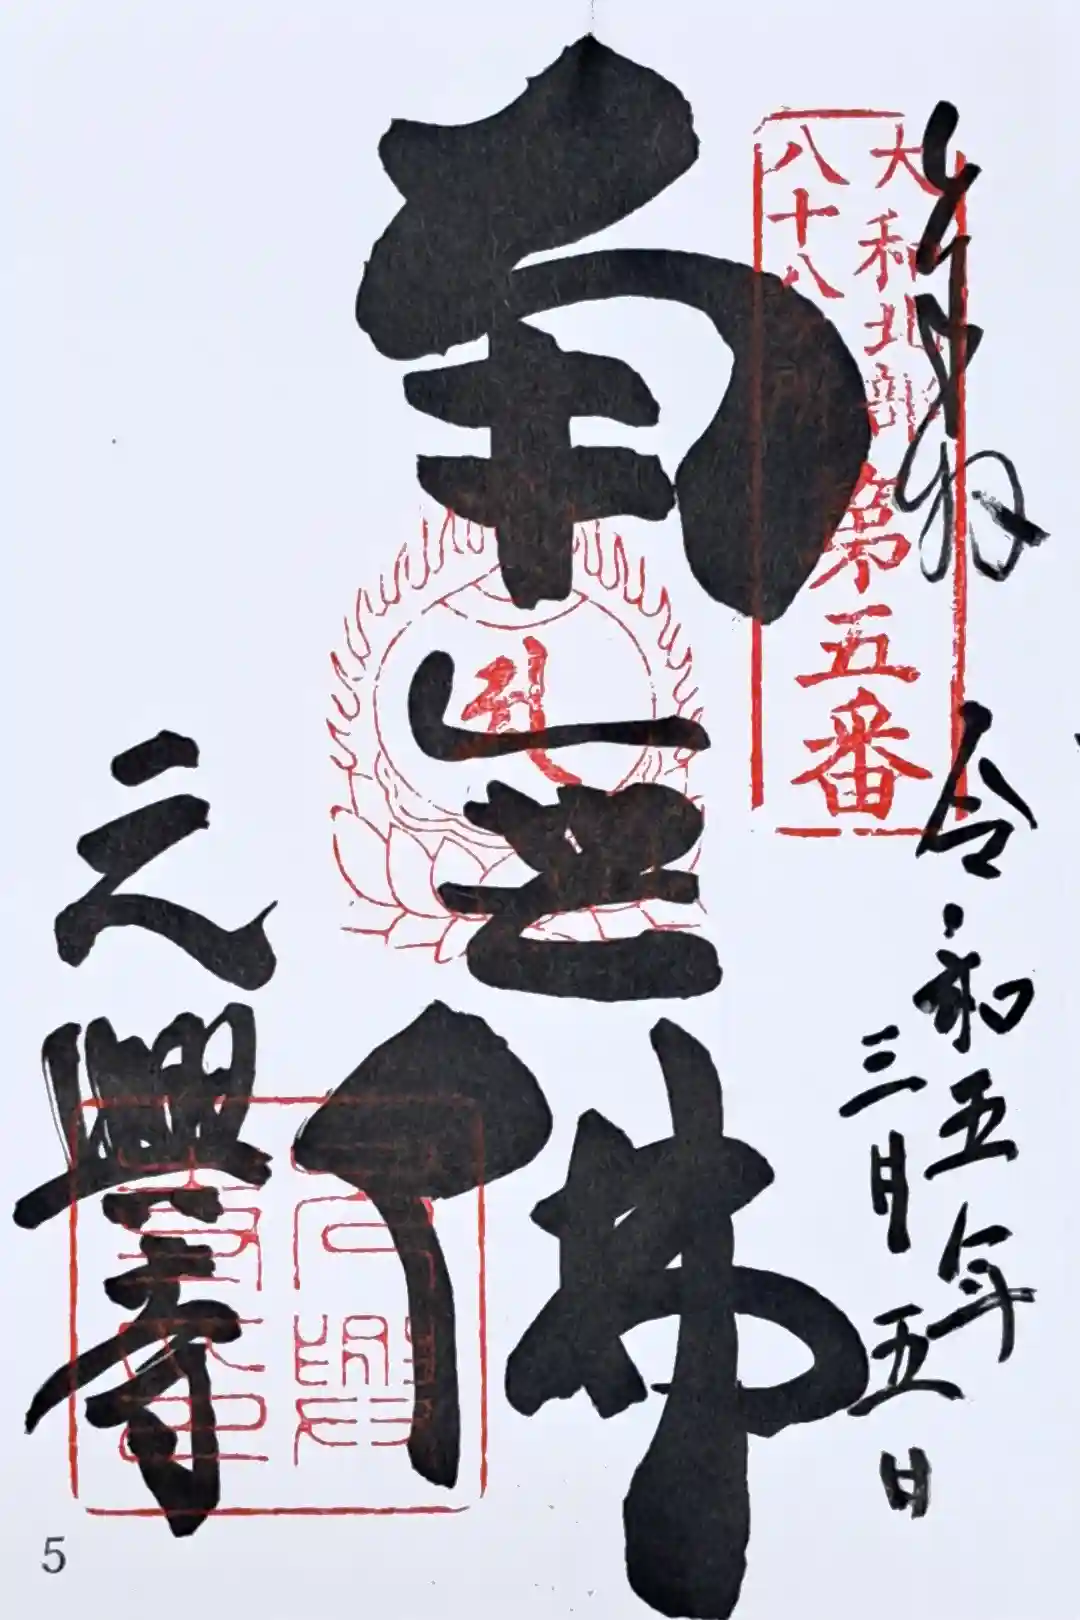 奉拝
令和五年
三月五日
大和北部
八十八
第五番
南無佛
元興寺
5